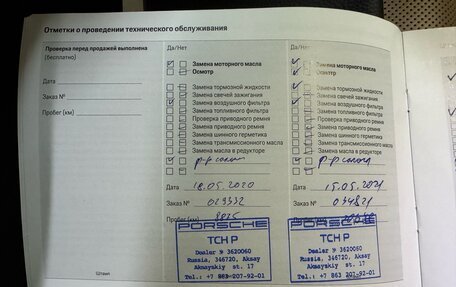 Отметки о проведении технического обслуживания
Проверка перед продажей выполнена
(бесплатно)
Дата
Заказ №
Пробег (км)
Штамп
Да/Нет
Замена моторного масла
Осмотр
Замена тормозной жидкости
Замена свечей зажигания
Замена воздушного фильтра
Замена топливного фильтра
Проверка приводного ремня
Замена приводного ремня
Замена шинного герметика
Замена трансмиссионного масла
Замена масла в редукторе
ф-р салон
Дата 18.05.2020
Заказ № 029332
Пробег (км)
PORSCHE
ТСН Р
Dealer № 3620060
Russia, 346720, Aksay
Aksayskiy st. 17
Tel.: +7 863 207-92-01
Да/Нет
Замена моторного масла
Осмотр
Замена тормозной жидкости
Замена свечей зажигания
Замена воздушного фильтра
Замена топливного фильтра
Проверка приводного ремня
Замена приводного ремня
Замена шинного герметика
Замена трансмиссионного масла
Замена масла в редукторе
ф-р салона
Дата 15.05.2021
Заказ № 034821
PORSCHE
ТСН Р
Dealer № 3620060
Russia, 346720, Aksay
Aksayskiy st. 17
Tel.: +7 863 207-92-01